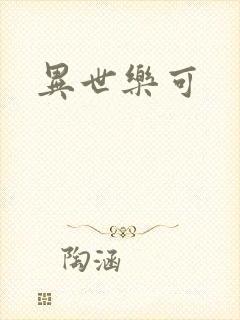 異世樂可
陶涵